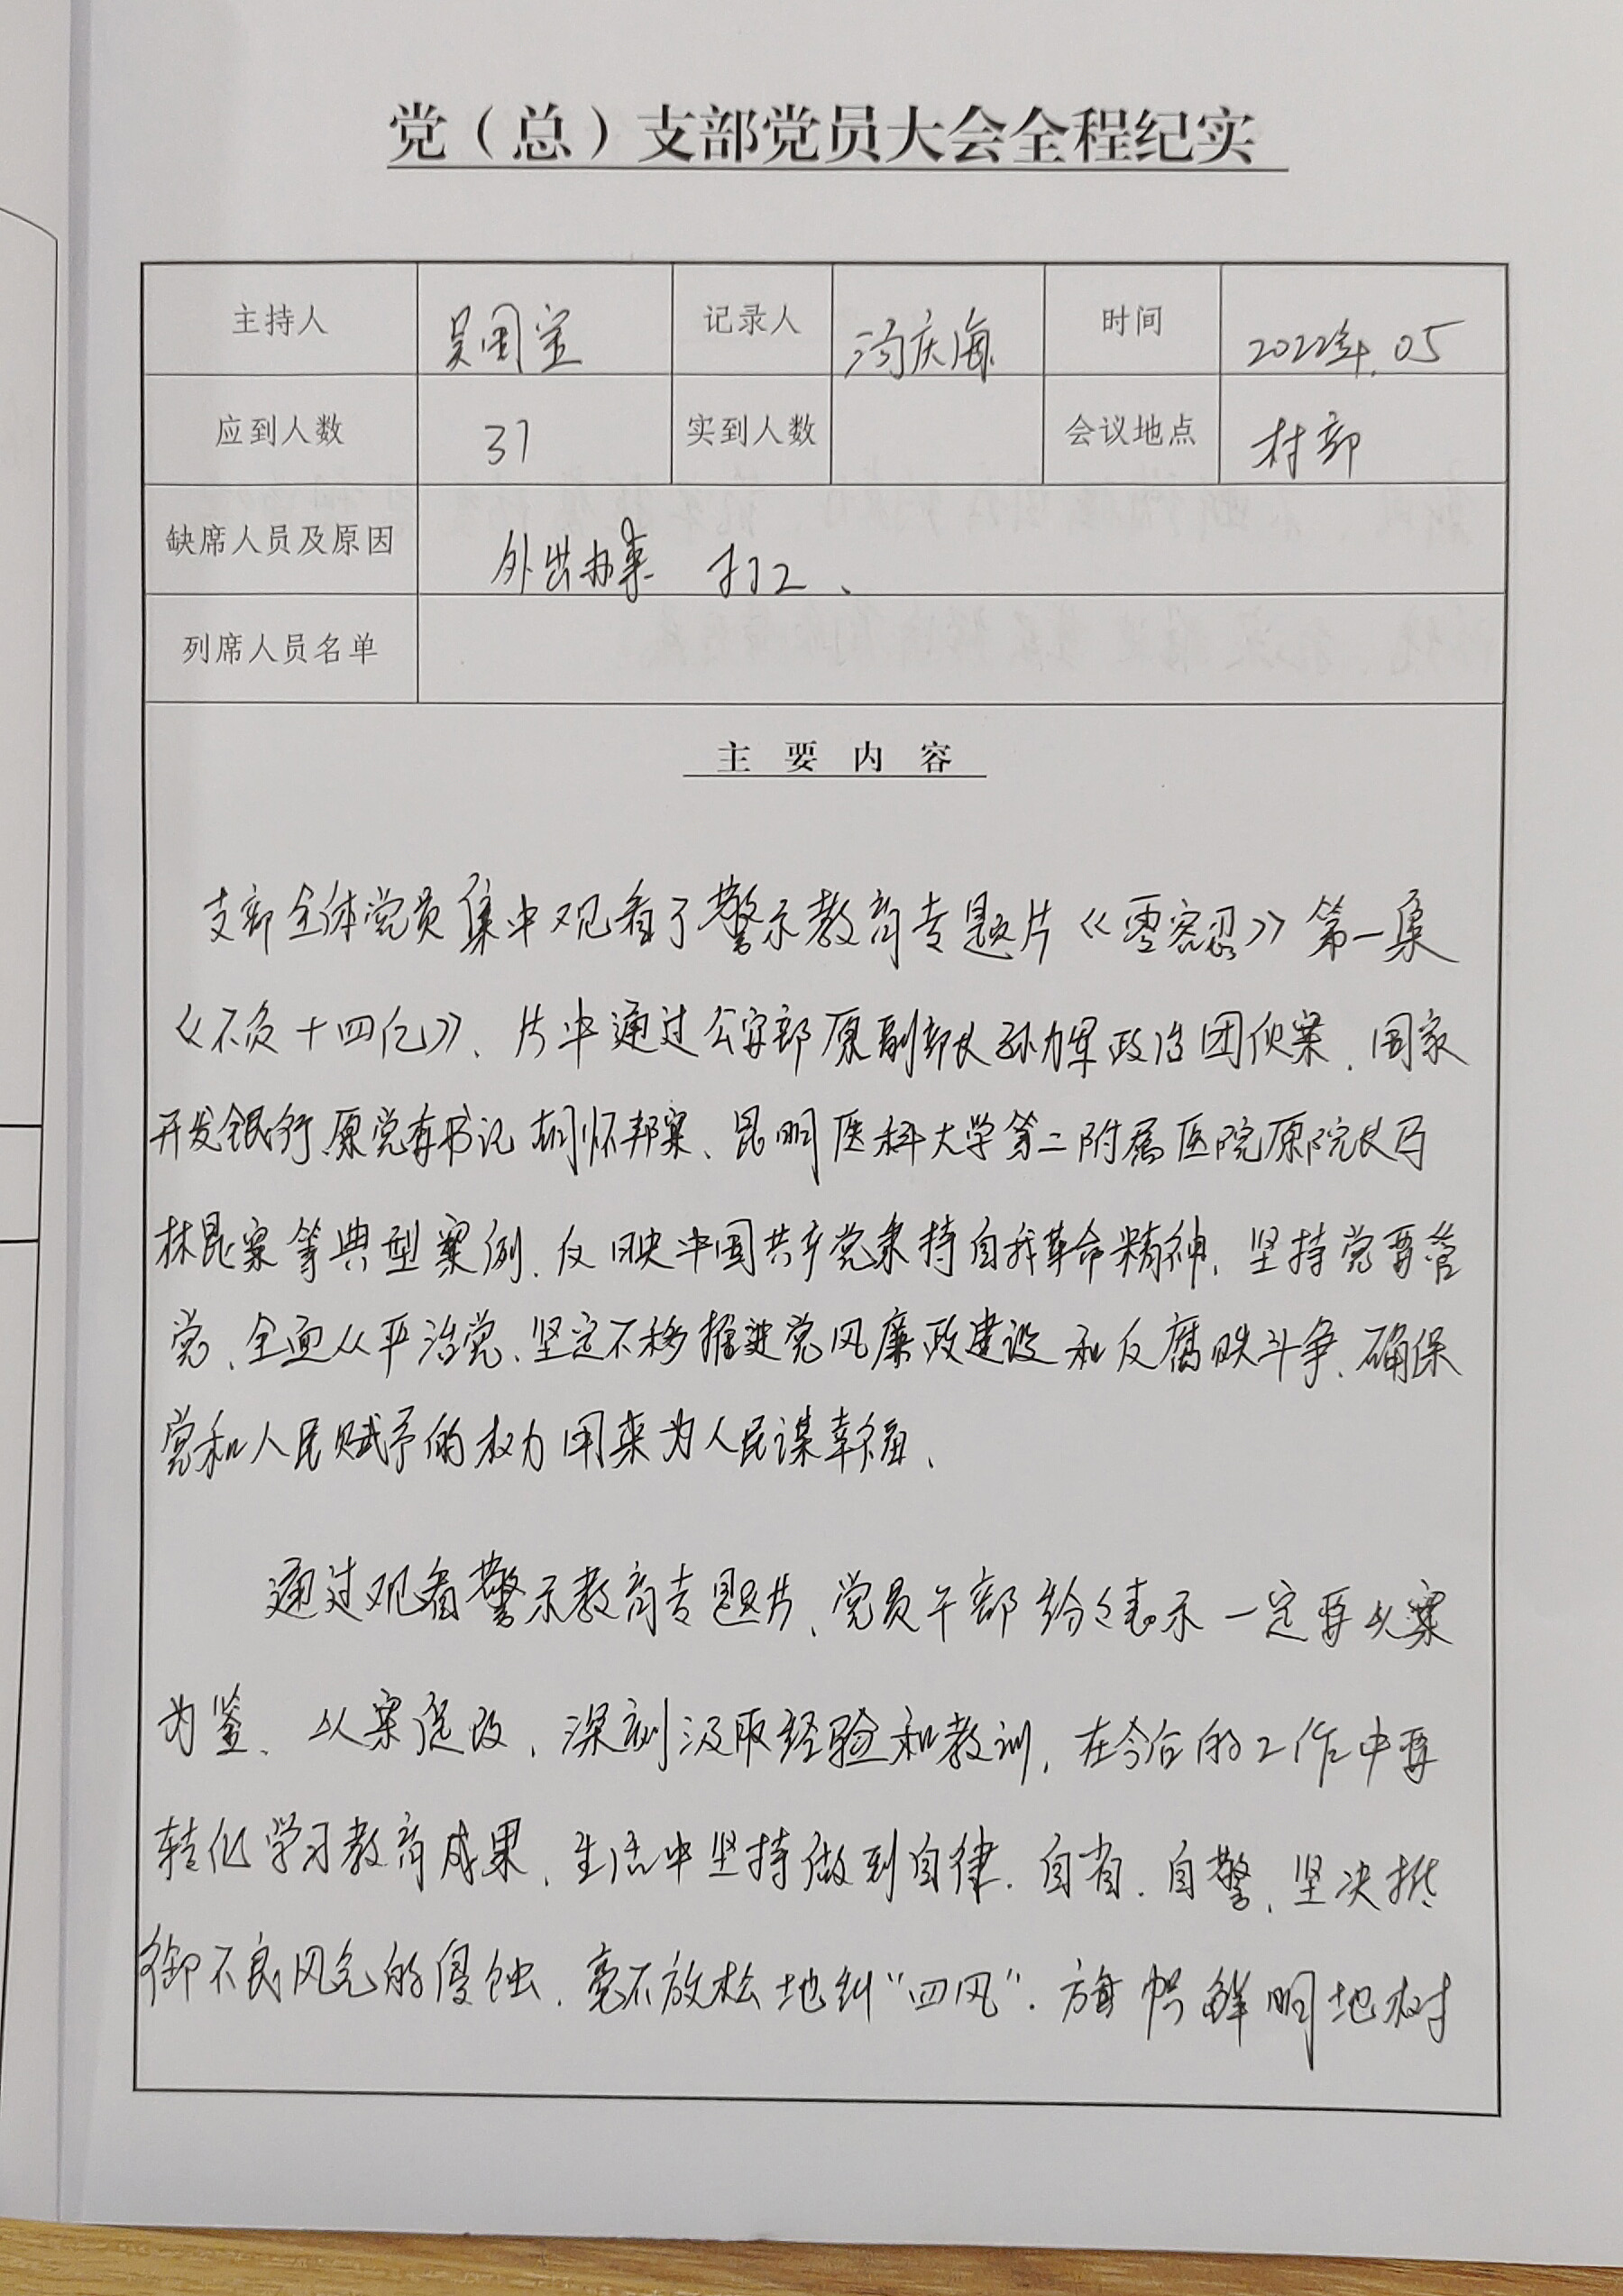 党（总）支部党员大会全程纪实
主持人 吴国宝 记录人 汤庆海 时间 2022年.05
应到人数 37 实到人数 会议地点 村部
缺席人员及原因 外出办事 打工、
列席人员名单
主要内容
支部全体党员集中观看了警示教育专题片《零容忍》第一集
《不负十四亿》、片中通过公安部原副部长孙力军政治团伙案、国家
开发银行原党委书记胡怀邦案、昆明医科大学第二附属医院原院长马
林昆案等典型案例、反映中国共产党秉持自我革命精神、坚持党要管
党、全面从严治党、坚定不移推进党风廉政建设和反腐败斗争、确保
党和人民赋予的权力用来为人民谋幸福、
通过观看警示教育专题片、党员干部纷々表示一定要以案
为鉴、以案促改、深刻汲取经验和教训、在今后的工作中要
转化学习教育成果、生活中坚持做到自律.自省.自警、坚决抵
御不良风气的侵蚀、毫不放松地纠“四风”.旗帜鲜明地树